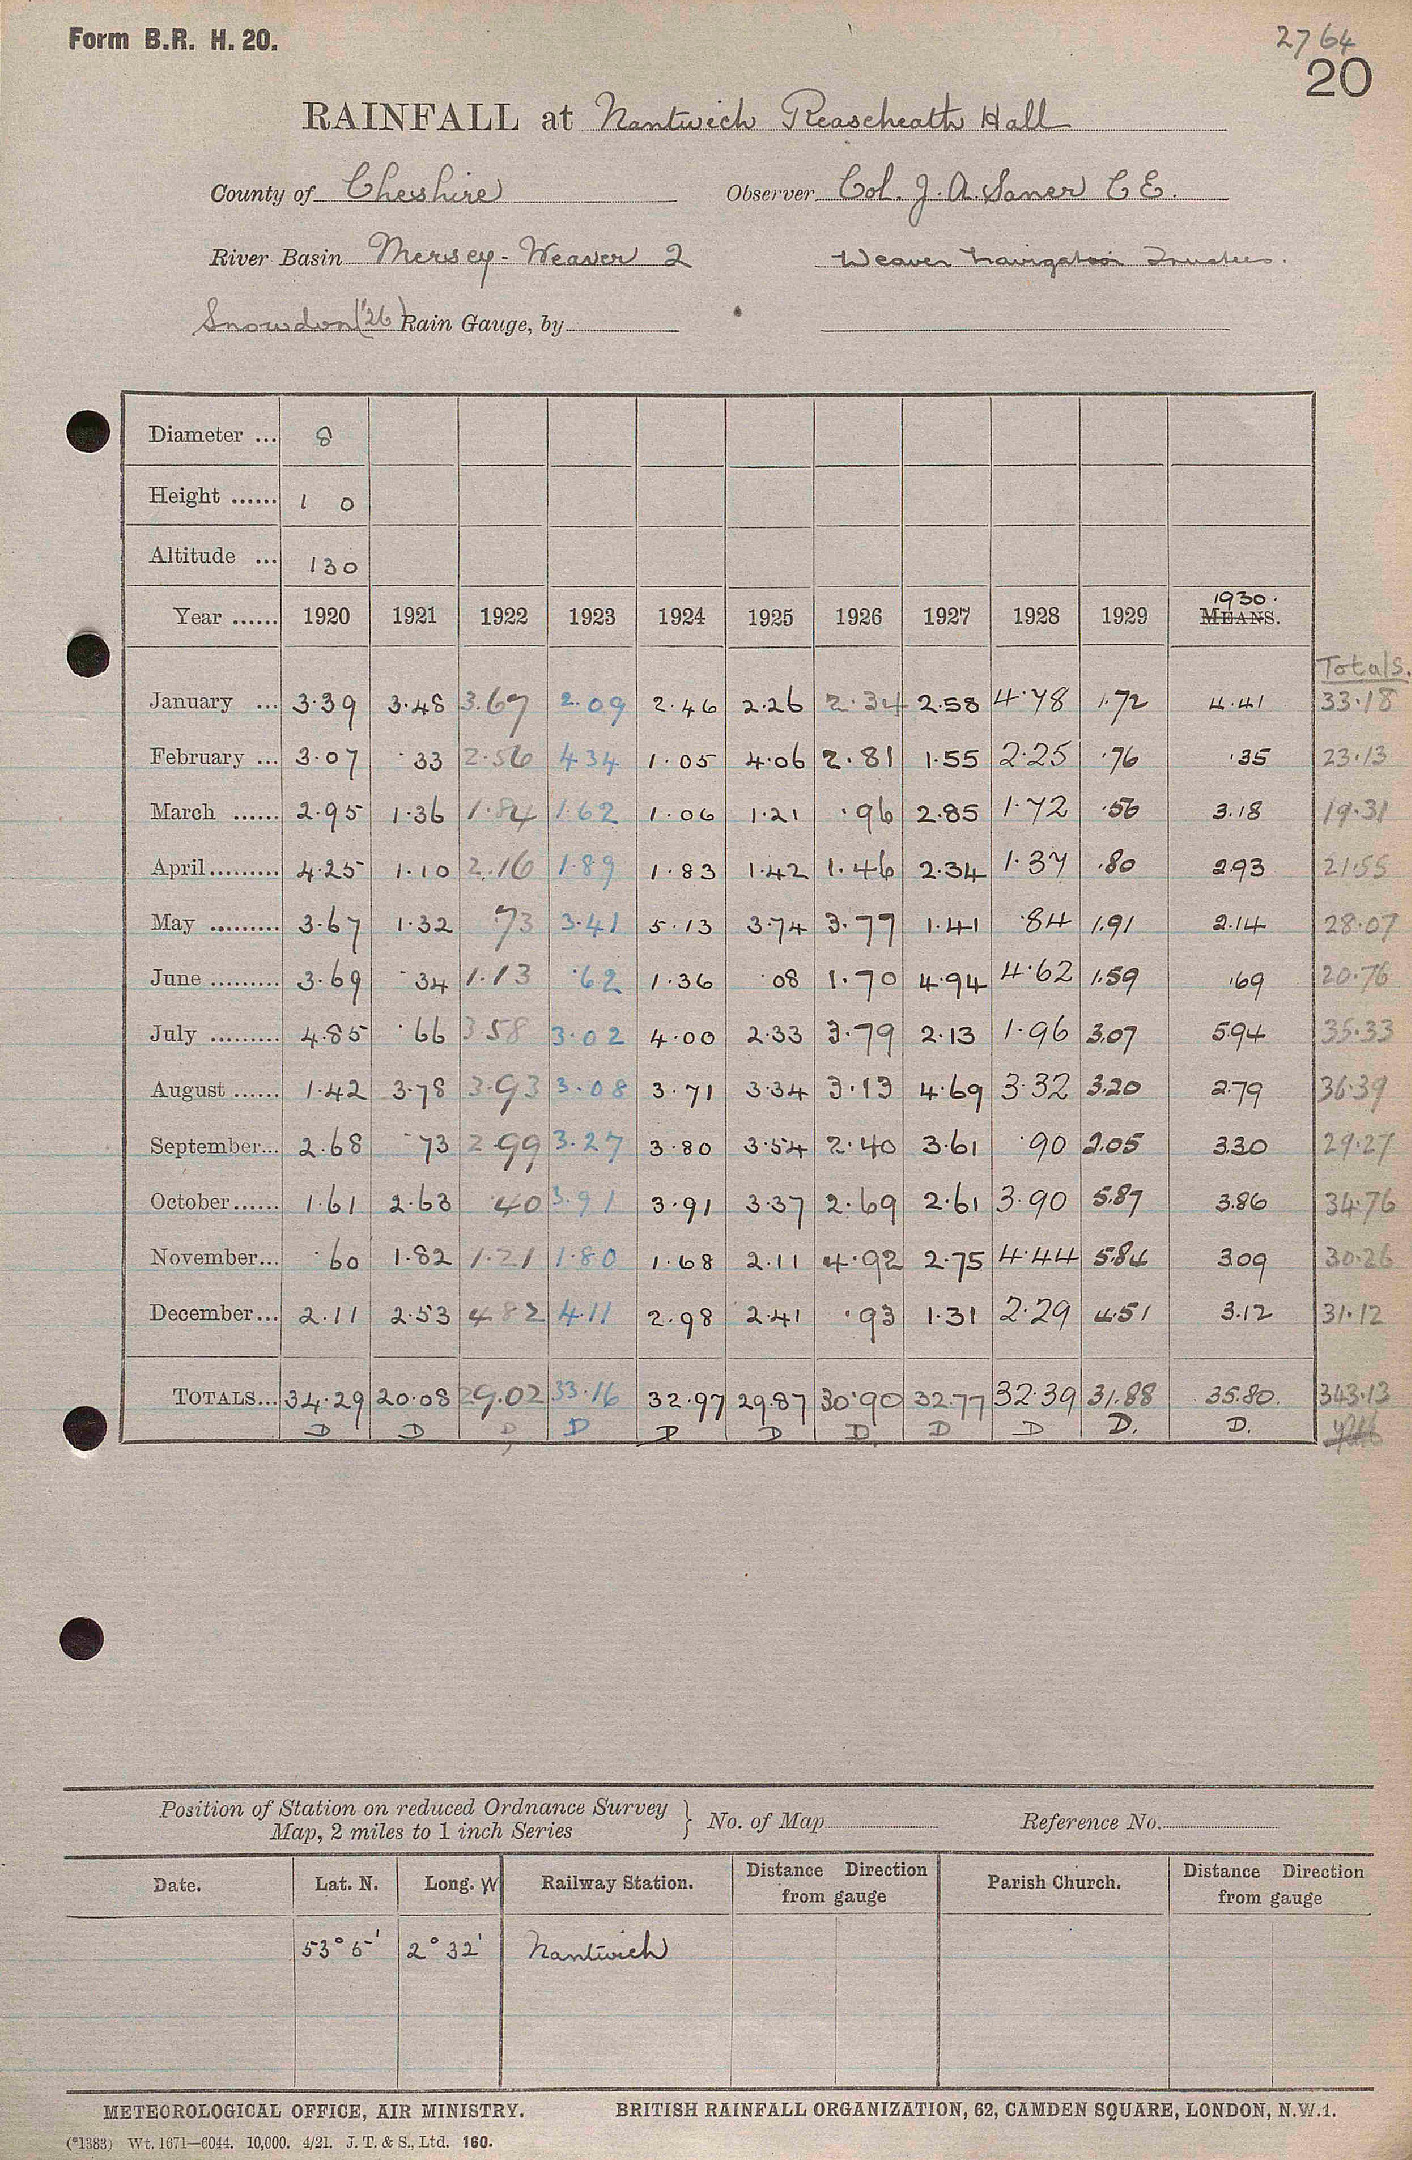 Form B.R. H. 20.
2764
20
RAINFALL at Nantwich Reaseheath Hall
County of Cheshire Observer Col. J. A. Saner C E.
River Basin Mersey - Weaver 2 Weaver Navigation Trustees.
Snowdon ('26) Rain Gauge, by
Diameter ... 8
Height ...... 1 0
Altitude ... 130
1930.
Year ...... 1920 1921 1922 1923 1924 1925 1926 1927 1928 1929 MEANS.
Totals.
January ... 3.39 3.48 3.67 2.09 2.46 2.26 2.34 2.58 4.78 1.72 4.41 33.18
February ... 3.07 .33 2.56 4.34 1.05 4.06 2.81 1.55 2.25 .76 .35 23.13
March ...... 2.95 1.36 1.84 1.62 1.06 1.21 .96 2.85 1.72 .56 3.18 19.31
April ......... 4.25 1.10 2.16 1.89 1.83 1.42 1.46 2.34 1.37 .80 2.93 21.55
May ......... 3.67 1.32 .73 3.41 5.13 3.74 3.77 1.41 .84 1.91 2.14 28.07
June ......... 3.69 .34 1.13 .62 1.36 .08 1.70 4.94 4.62 1.59 .69 20.76
July ......... 4.85 .66 3.58 3.02 4.00 2.33 3.79 2.13 1.96 3.07 5.94 35.33
August ...... 1.42 3.78 3.93 3.08 3.71 3.34 3.13 4.69 3.32 3.20 2.79 36.39
September... 2.68 .73 2.99 3.27 3.80 3.54 2.40 3.61 .90 2.05 3.30 29.27
October ...... 1.61 2.63 .40 3.91 3.91 3.37 2.69 2.61 3.90 5.87 3.86 34.76
November... .60 1.82 1.21 1.80 1.68 2.11 4.92 2.75 4.44 5.84 3.09 30.26
December... 2.11 2.53 4.82 4.11 2.98 2.41 .93 1.31 2.29 4.51 3.12 31.12
TOTALS... 34.29 20.08 29.02 33.16 32.97 29.87 30.90 32.77 32.39 31.88 35.80. 343.13
D D D, D D D D. D D D. D.
Position of Station on reduced Ordnance Survey
Map, 2 miles to 1 inch Series } No. of Map Reference No.
Date. Lat. N. Long. W Railway Station. Distance Direction from gauge Parish Church. Distance Direction from gauge
53° 5' 2° 32' Nantwich
METEOROLOGICAL OFFICE, AIR MINISTRY. BRITISH RAINFALL ORGANIZATION, 62, CAMDEN SQUARE, LONDON, N.W.1.
(*1383) Wt. 1671—6044. 10,000. 4/21. J. T. & S., Ltd. 160.